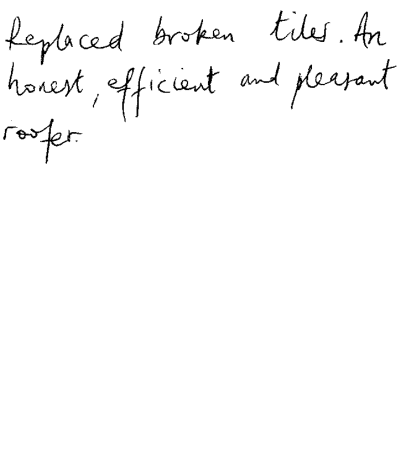 Replaced broken tiles. An
honest, efficient and pleasant
roofer.